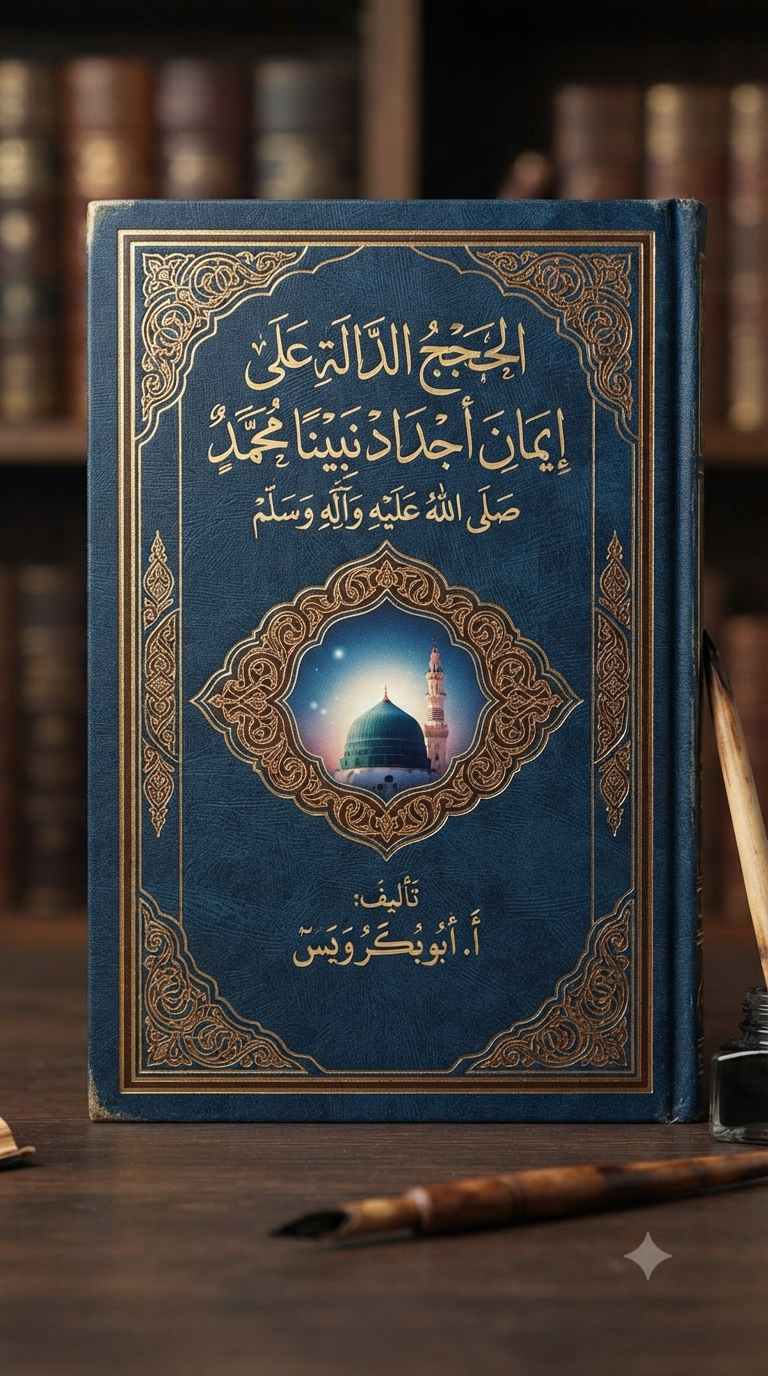 الحَجَجُ الدَّالَةِ عَلَى
إِيمَانِ أَجْدَادْ نَبِيْنَا مُحَمَّدٌ
صَلَى اللهُ عَلَيْهِ وَآلِهِ وَسَلّمْ
تَأليفَ:
أَ. أبُوبُكَرُ وَيَسّ